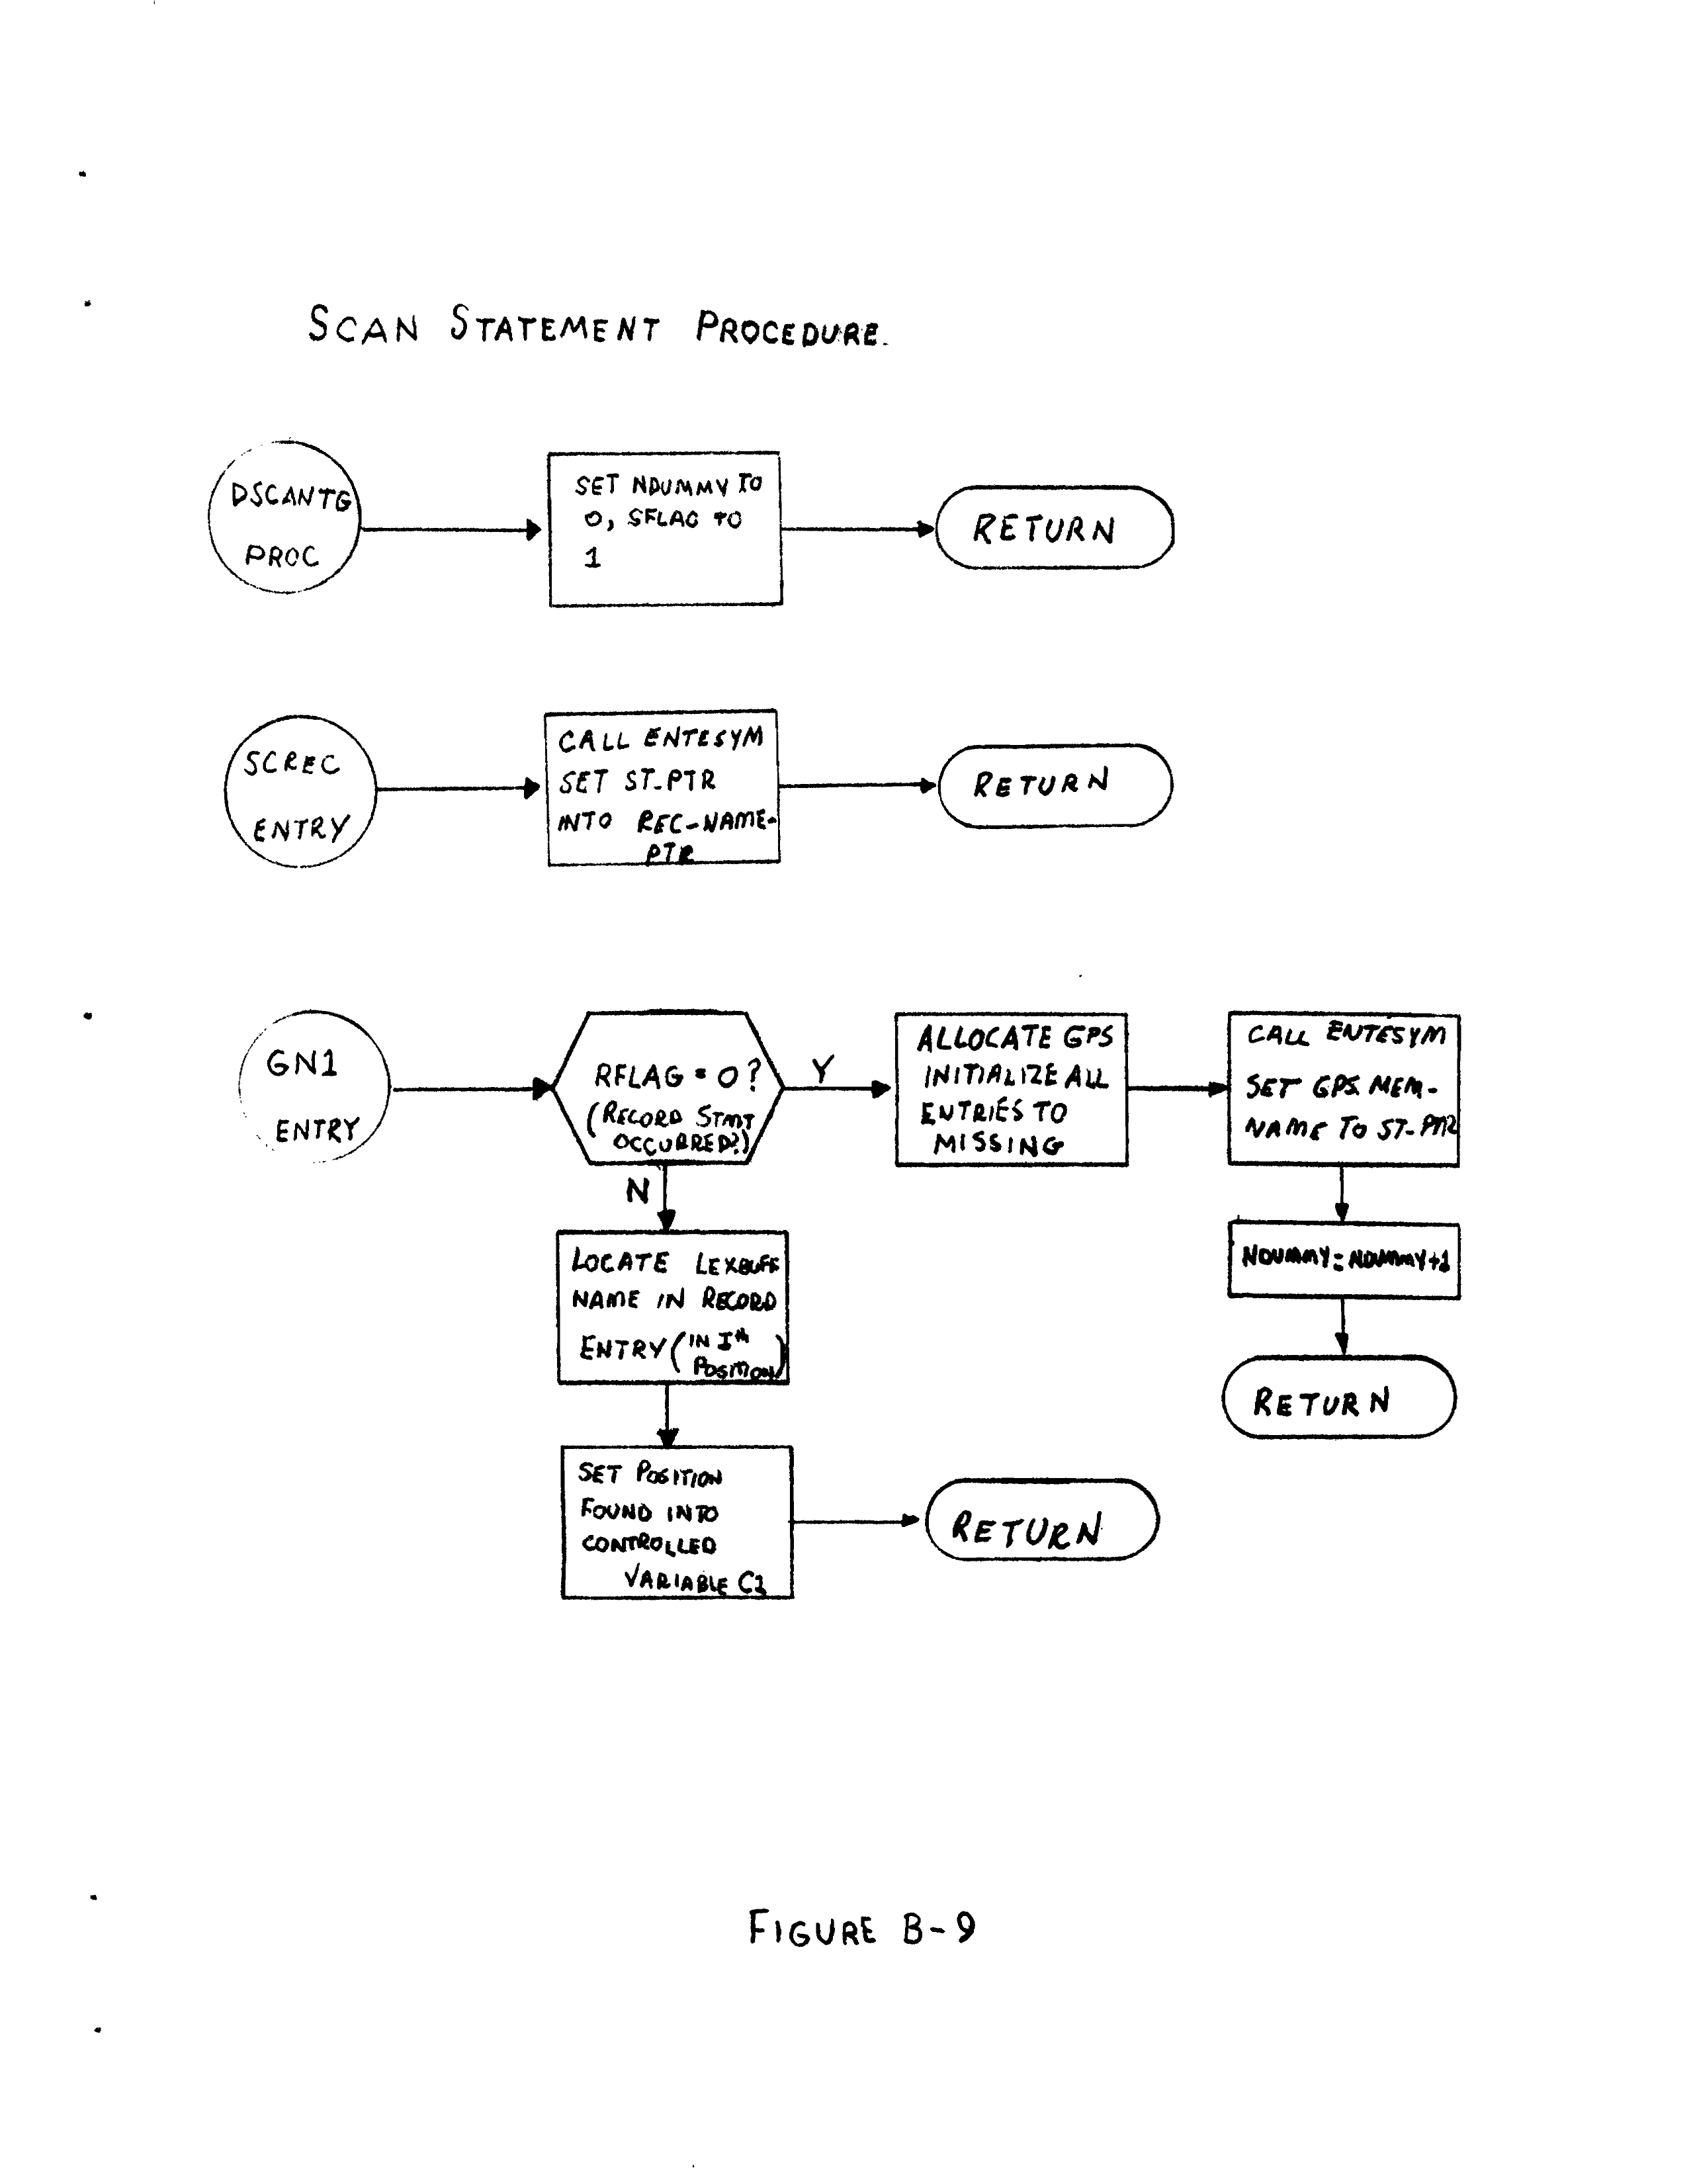 SCAN STATEMENT PROCEDURE.
DSCANTG
PROC
SET NDUMMY TO
0, SFLAG TO
1
RETURN
SCREC
ENTRY
CALL ENTESYM
SET ST-PTR
INTO REC-NAME-
PTR
RETURN
GN1
ENTRY
RFLAG = 0?
(RECORD STMT
OCCURRED?)
Y
N
ALLOCATE GPS
INITIALIZE ALL
ENTRIES TO
MISSING
CALL ENTESYM
SET GPS. MEM-
NAME TO ST-PTR
NDUMMY=NDUMMY+1
RETURN
LOCATE LEXBUFF
NAME IN RECORD
ENTRY (IN Ith
POSITION)
SET POSITION
FOUND INTO
CONTROLLED
VARIABLE C1
RETURN
FIGURE B-9